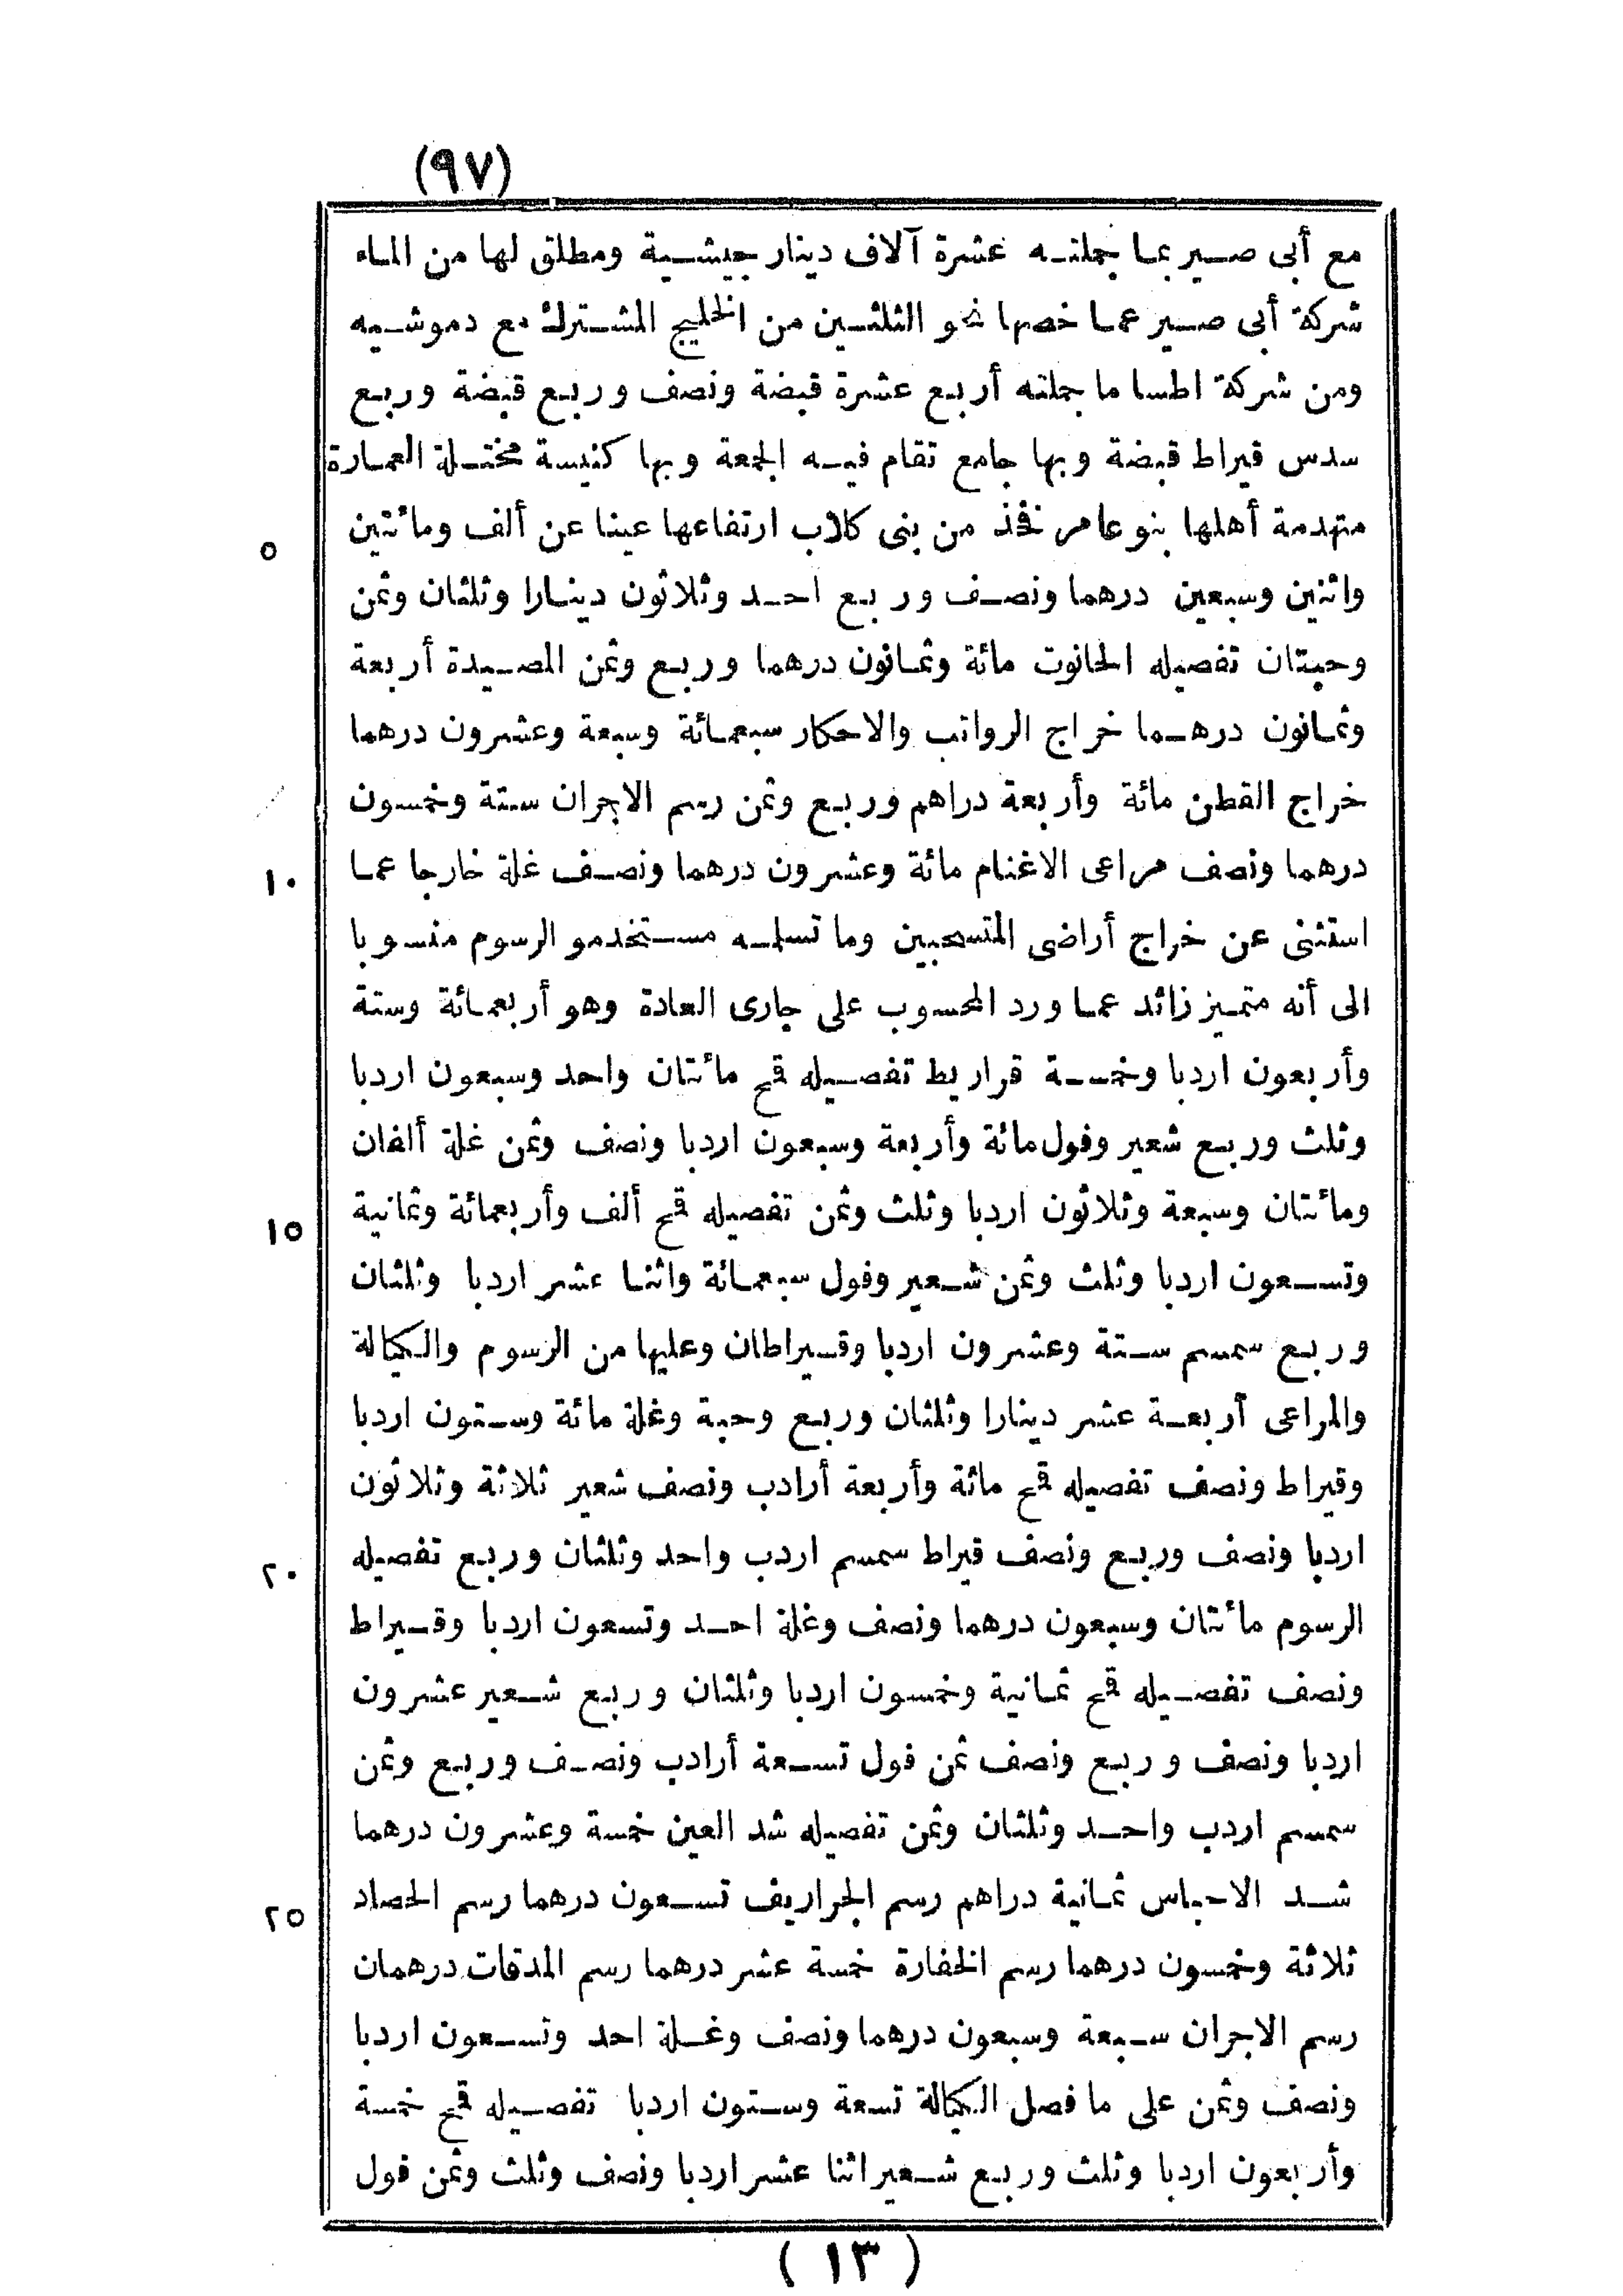 (٩٧)
مع أبى صير بما جملته عشرة آلاف دينار جيشية ومطلق لها من الماء
شركة أبى صير عما خصها نحو الثلثين من الخليج المشترك مع دموشيه
ومن شركة اطسا ما جملته أربع عشرة قبضة ونصف وربع قبضة وربع
سدس قيراط قبضة وبها جامع تقام فيه الجمعة وبها كنيسة مختلة العمارة
متهدمة أهلها بنو عامر فخذ من بنى كلاب ارتفاعها عينا عن ألف ومائتين
٥
واثنين وسبعين درهما ونصف وربع احد وثلاثون دينارا وثلثان وثمن
وحبتان تفصيله الحانوت مائة وثمانون درهما وربع وثمن المصيدة أربعة
وثمانون درهما خراج الرواتب والاحكار سبعمائة وسبعة وعشرون درهما
خراج القطن مائة وأربعة دراهم وربع وثمن رسم الاجران ستة وخمسون
درهما ونصف مراعى الاغنام مائة وعشرون درهما ونصف غلة خارجا عما
١٠
استثنى عن خراج أراضى المتسحبين وما تسلمه مستخدمو الرسوم منسوبا
الى أنه متميز زائد عما ورد المحسوب على جارى العادة وهو أربعمائة وستة
وأربعون اردبا وخمسة قراريط تفصيله قمح مائتان واحد وسبعون اردبا
وثلث وربع شعير وفول مائة وأربعة وسبعون اردبا ونصف وثمن غلة ألفان
ومائتان وسبعة وثلاثون اردبا وثلث وثمن تفصيله قمح ألف وأربعمائة وثمانية
١٥
وتسعون اردبا وثلث وثمن شعير وفول سبعمائة واثنا عشر اردبا وثلثان
وربع سمسم ستة وعشرون اردبا وقيراطان وعليها من الرسوم والكيالة
والمراعى أربعة عشر دينارا وثلثان وربع وحبة وغلة مائة وستون اردبا
وقيراط ونصف تفصيله قمح مائة وأربعة أرادب ونصف شعير ثلاثة وثلاثون
اردبا ونصف وربع ونصف قيراط سمسم اردب واحد وثلثان وربع تفصيله
٢٠
الرسوم مائتان وسبعون درهما ونصف وغلة احد وتسعون اردبا وقيراط
ونصف تفصيله قمح ثمانية وخمسون اردبا وثلثان وربع شعير عشرون
اردبا ونصف وربع ونصف ثمن فول تسعة أرادب ونصف وربع وثمن
سمسم اردب واحد وثلثان وثمن تفصيله شد العين خمسة وعشرون درهما
شد الاحباس ثمانية دراهم رسم الجراريف تسعون درهما رسم الحصاد
٢٥
ثلاثة وخمسون درهما رسم الخفارة خمسة عشر درهما رسم المدقات درهمان
رسم الاجران سبعة وسبعون درهما ونصف وغلة احد وتسعون اردبا
ونصف وثمن على ما فصل الكيالة تسعة وستون اردبا تفصيله قمح خمسة
وأربعون اردبا وثلث وربع شعير اثنا عشر اردبا ونصف وثلث وثمن فول
(١٣)